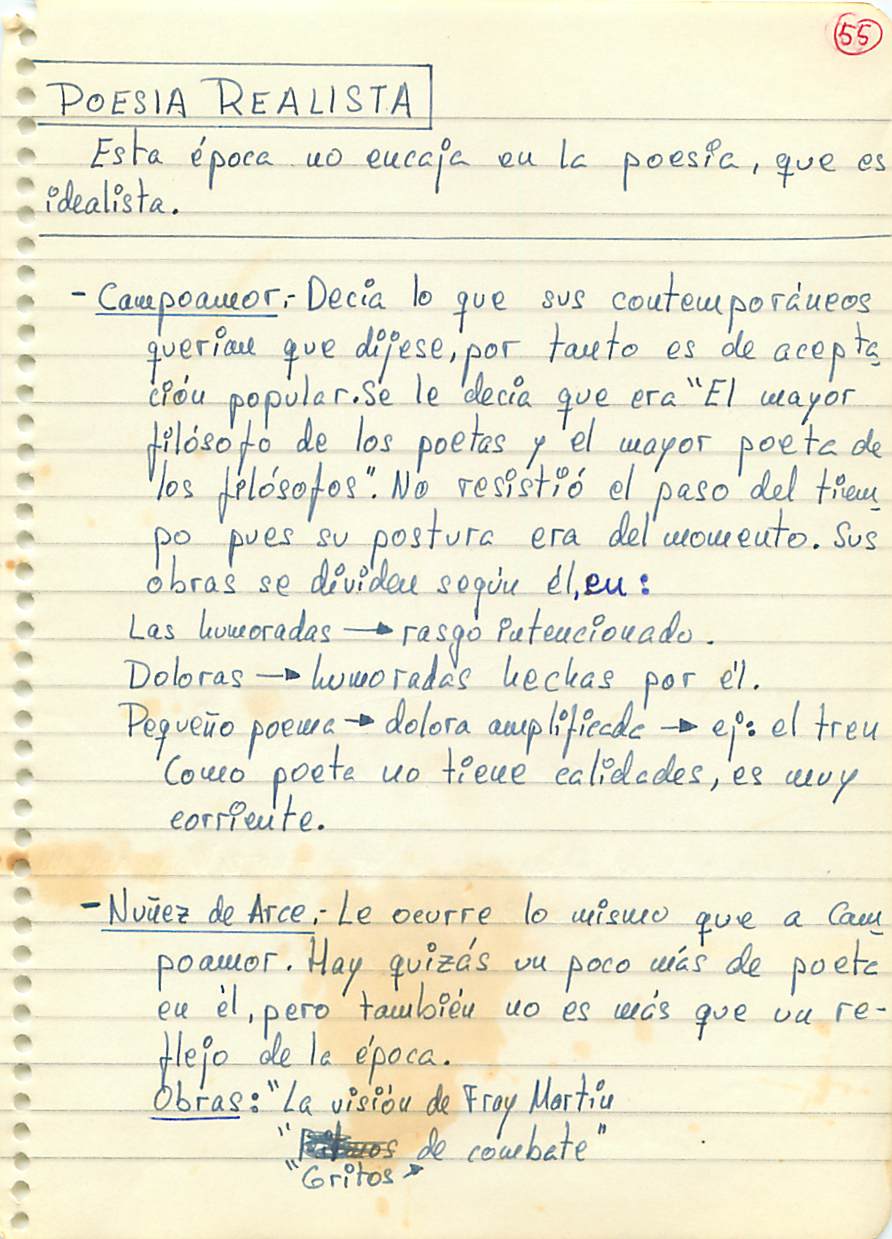 55
POESIA REALISTA
Esta época no encaja en la poesía, que es
idealista.
- Campoamor.- Decía lo que sus contemporáneos
querían que dijese, por tanto es de acepta
ción popular. Se le decía que era "El mayor
filósofo de los poetas y el mayor poeta de
los filósofos". No resistió el paso del tiem
po pues su postura era del momento. Sus
obras se dividen según él, en:
Las humoradas → rasgo intencionado.
Doloras → humoradas hechas por él.
Pequeño poema → dolora amplificada → ej: el tren
Como poeta no tiene calidades, es muy
corriente.
- Nuñez de Arce.- Le ocurre lo mismo que a Cam
poamor. Hay quizás un poco más de poeta
en él, pero también no es más que un re-
flejo de la época.
Obras: "La visión de Fray Martin
" de combate"
"Gritos →